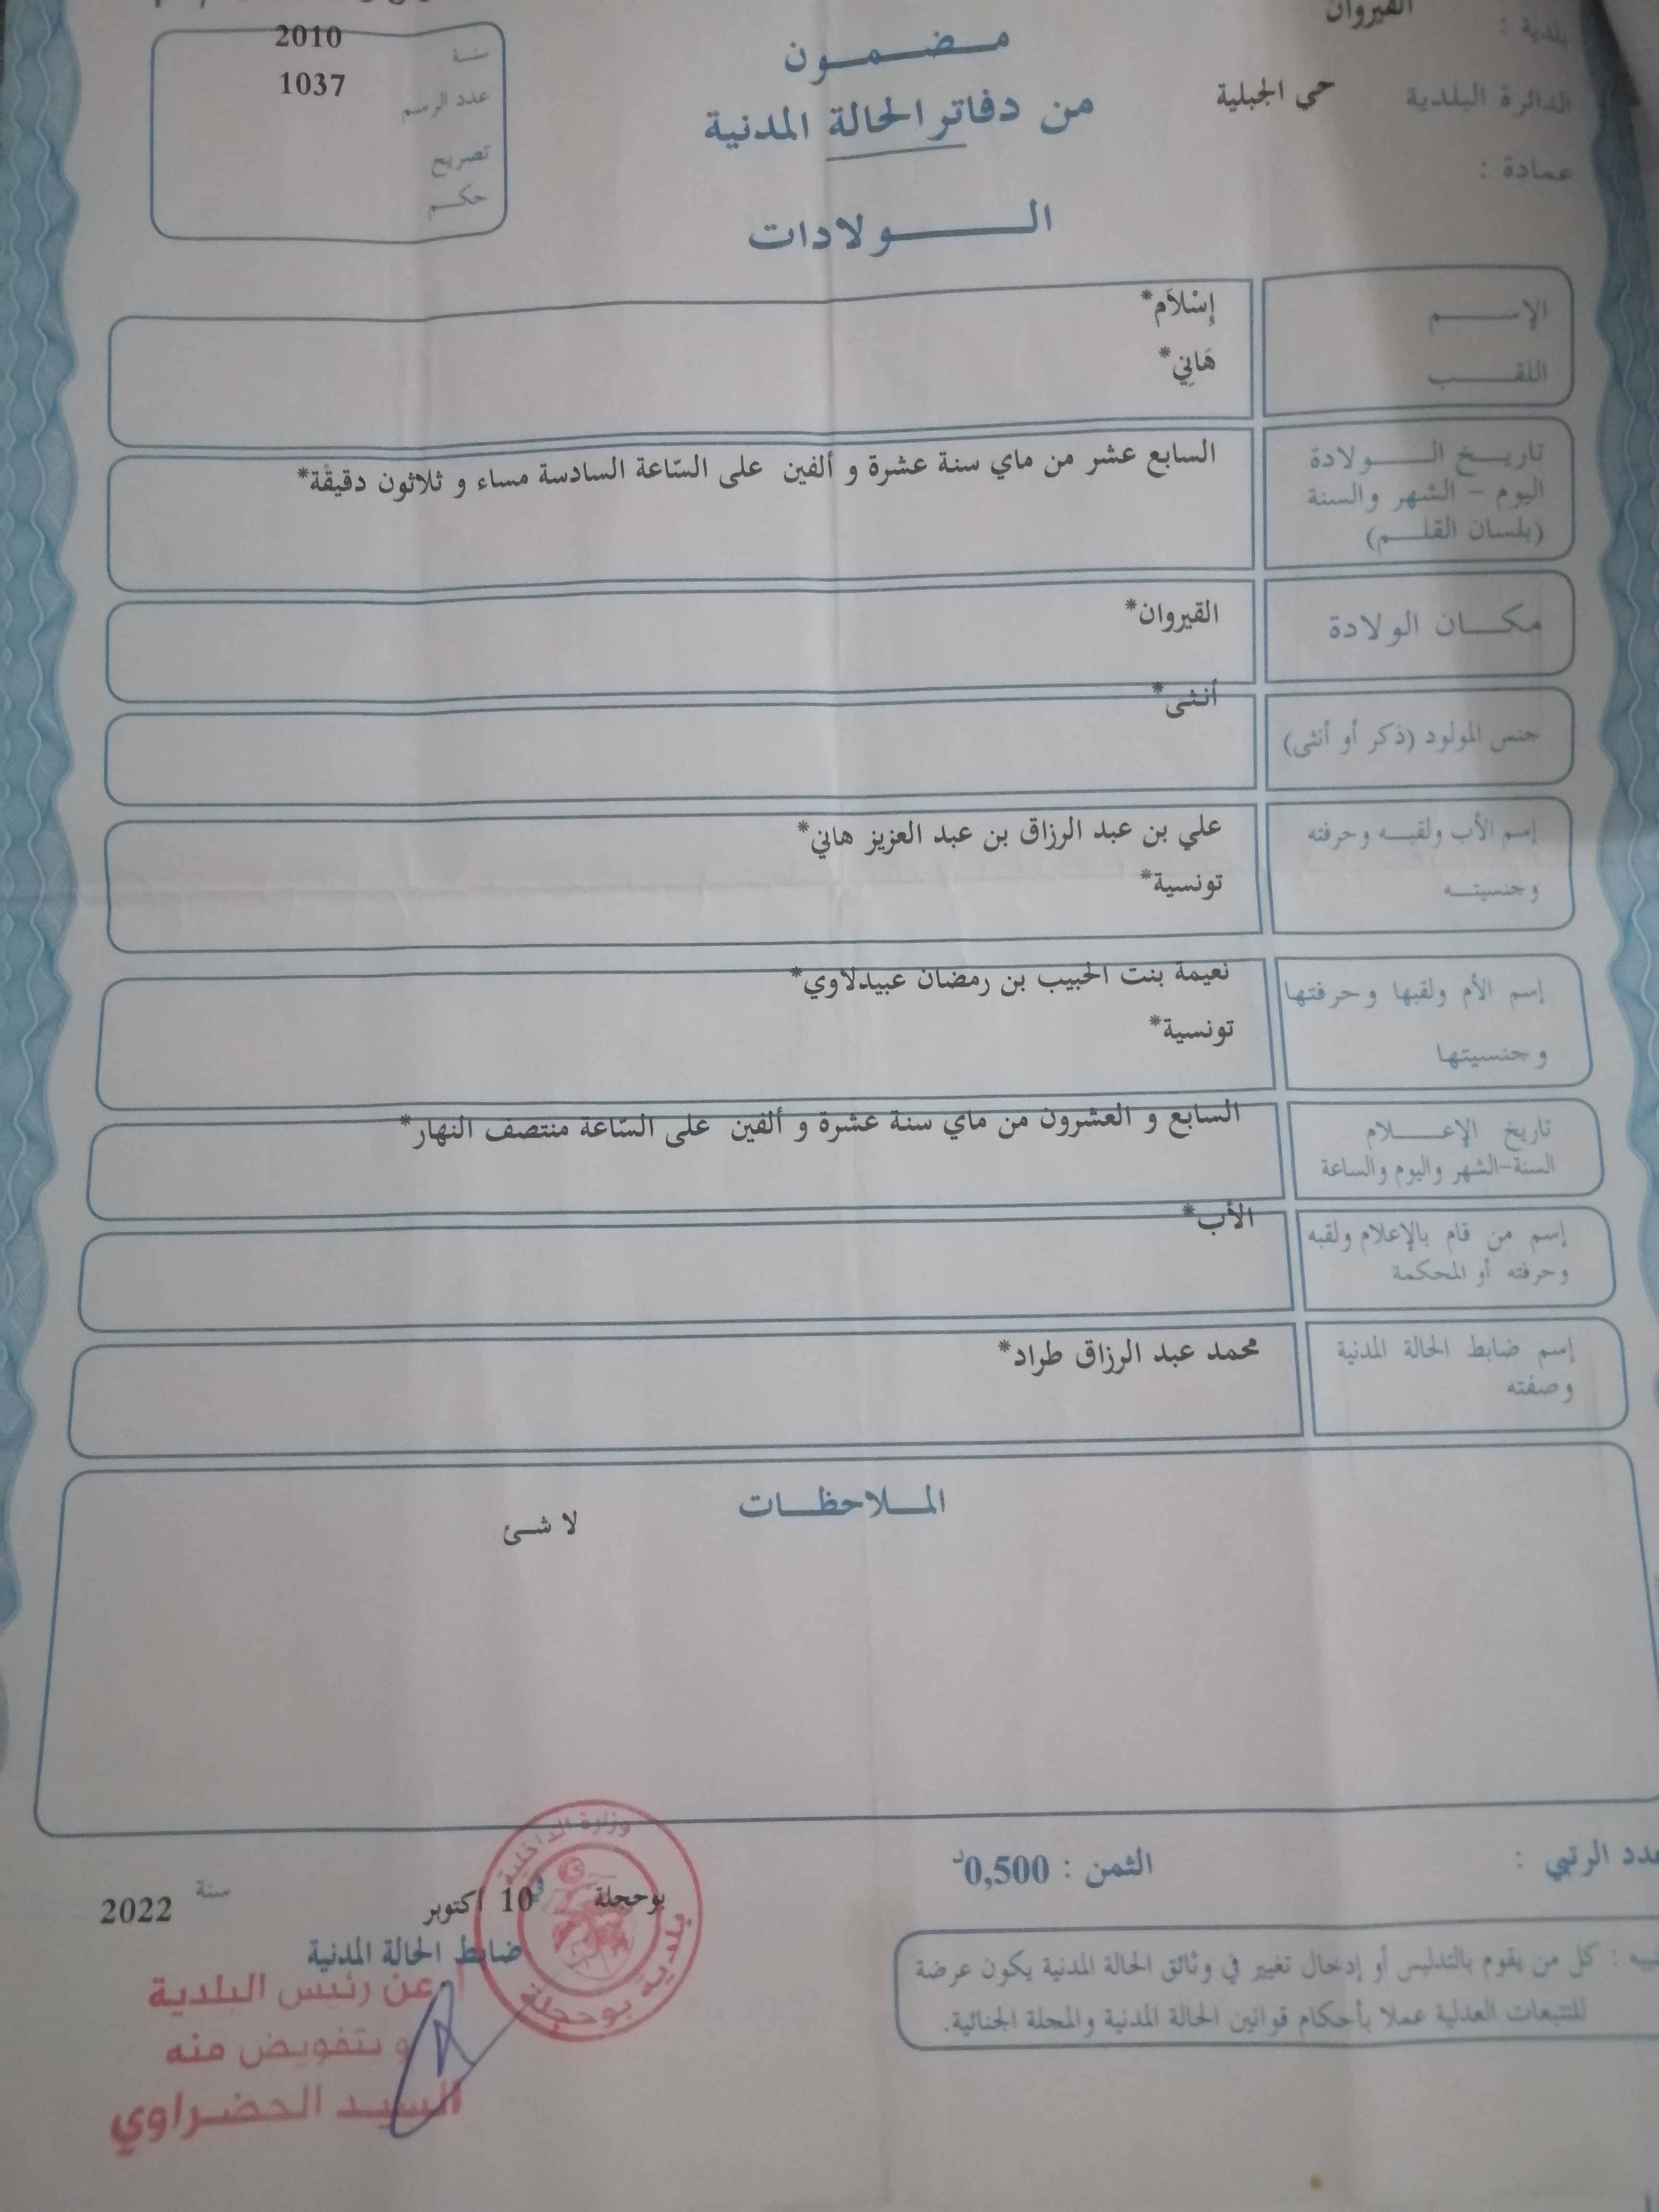 بلدية : القيروان
الدائرة البلدية حي الجبلية
عمادة :
مضمون
من دفاتر الحالة المدنية
الولادات
سنة 2010
عدد الرسم 1037
تصريح
حكم
الإسم إِسْلاَم*
اللقب هَانِي*
تاريخ الولادة السابع عشر من ماي سنة عشرة و ألفين على السّاعة السادسة مساء و ثلاثون دقيقة*
اليوم - الشهر والسنة
(بلسان القلم)
مكان الولادة القيروان*
جنس المولود (ذكر أو أنثى) أنثى*
إسم الأب ولقبه وحرفته علي بن عبد الرزاق بن عبد العزيز هاني*
وجنسيته تونسية*
إسم الأم ولقبها وحرفتها نعيمة بنت الحبيب بن رمضان عبيدلاوي*
وجنسيتها تونسية*
تاريخ الإعلام السابع و العشرون من ماي سنة عشرة و ألفين على السّاعة منتصف النهار*
السنة-الشهر واليوم والساعة
إسم من قام بالإعلام ولقبه الأب*
وحرفته أو المحكمة
إسم ضابط الحالة المدنية محمد عبد الرزاق طراد*
وصفته
الملاحظات
لا شئ
الرتبي :
الثمن : 0,500د
بوحجلة في 10 اكتوبر سنة 2022
ضابط الحالة المدنية
عن رئيس البلدية
وبتفويض منه
السيد الحضراوي
وزارة الداخلية
بلدية بوحجلة
: كل من يقوم بالتدليس أو إدخال تغيير في وثائق الحالة المدنية يكون عرضة
للتتبعات العدلية عملا بأحكام قوانين الحالة المدنية والمجلة الجنائية.